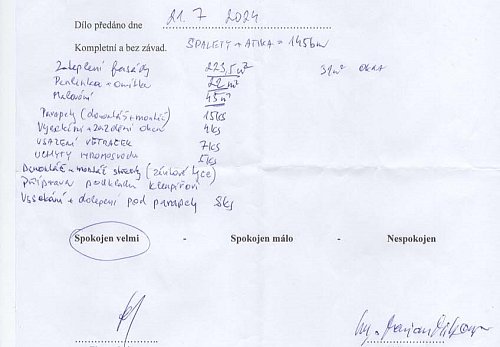 Dílo předáno dne 21. 7 2024
Kompletní a bez závad. ŠPALETY + ATIKA = 145bm
Zateplení fasády 223,5m² 31m² OKNA
Perlinka + omítka 22m²
Malování 45m²
Parapety (demontáž + montáž) 15ks
Vysekání + zazdění oken 4ks
USAZENÍ VĚTRAČEK 7ks
UCHYTY HROMOSVODU 5ks
Demontáž + montáž
Příprava podkladu klempíři
Vysekání + dolepení pod parapety 8ks
Spokojen velmi - Spokojen málo - Nespokojen